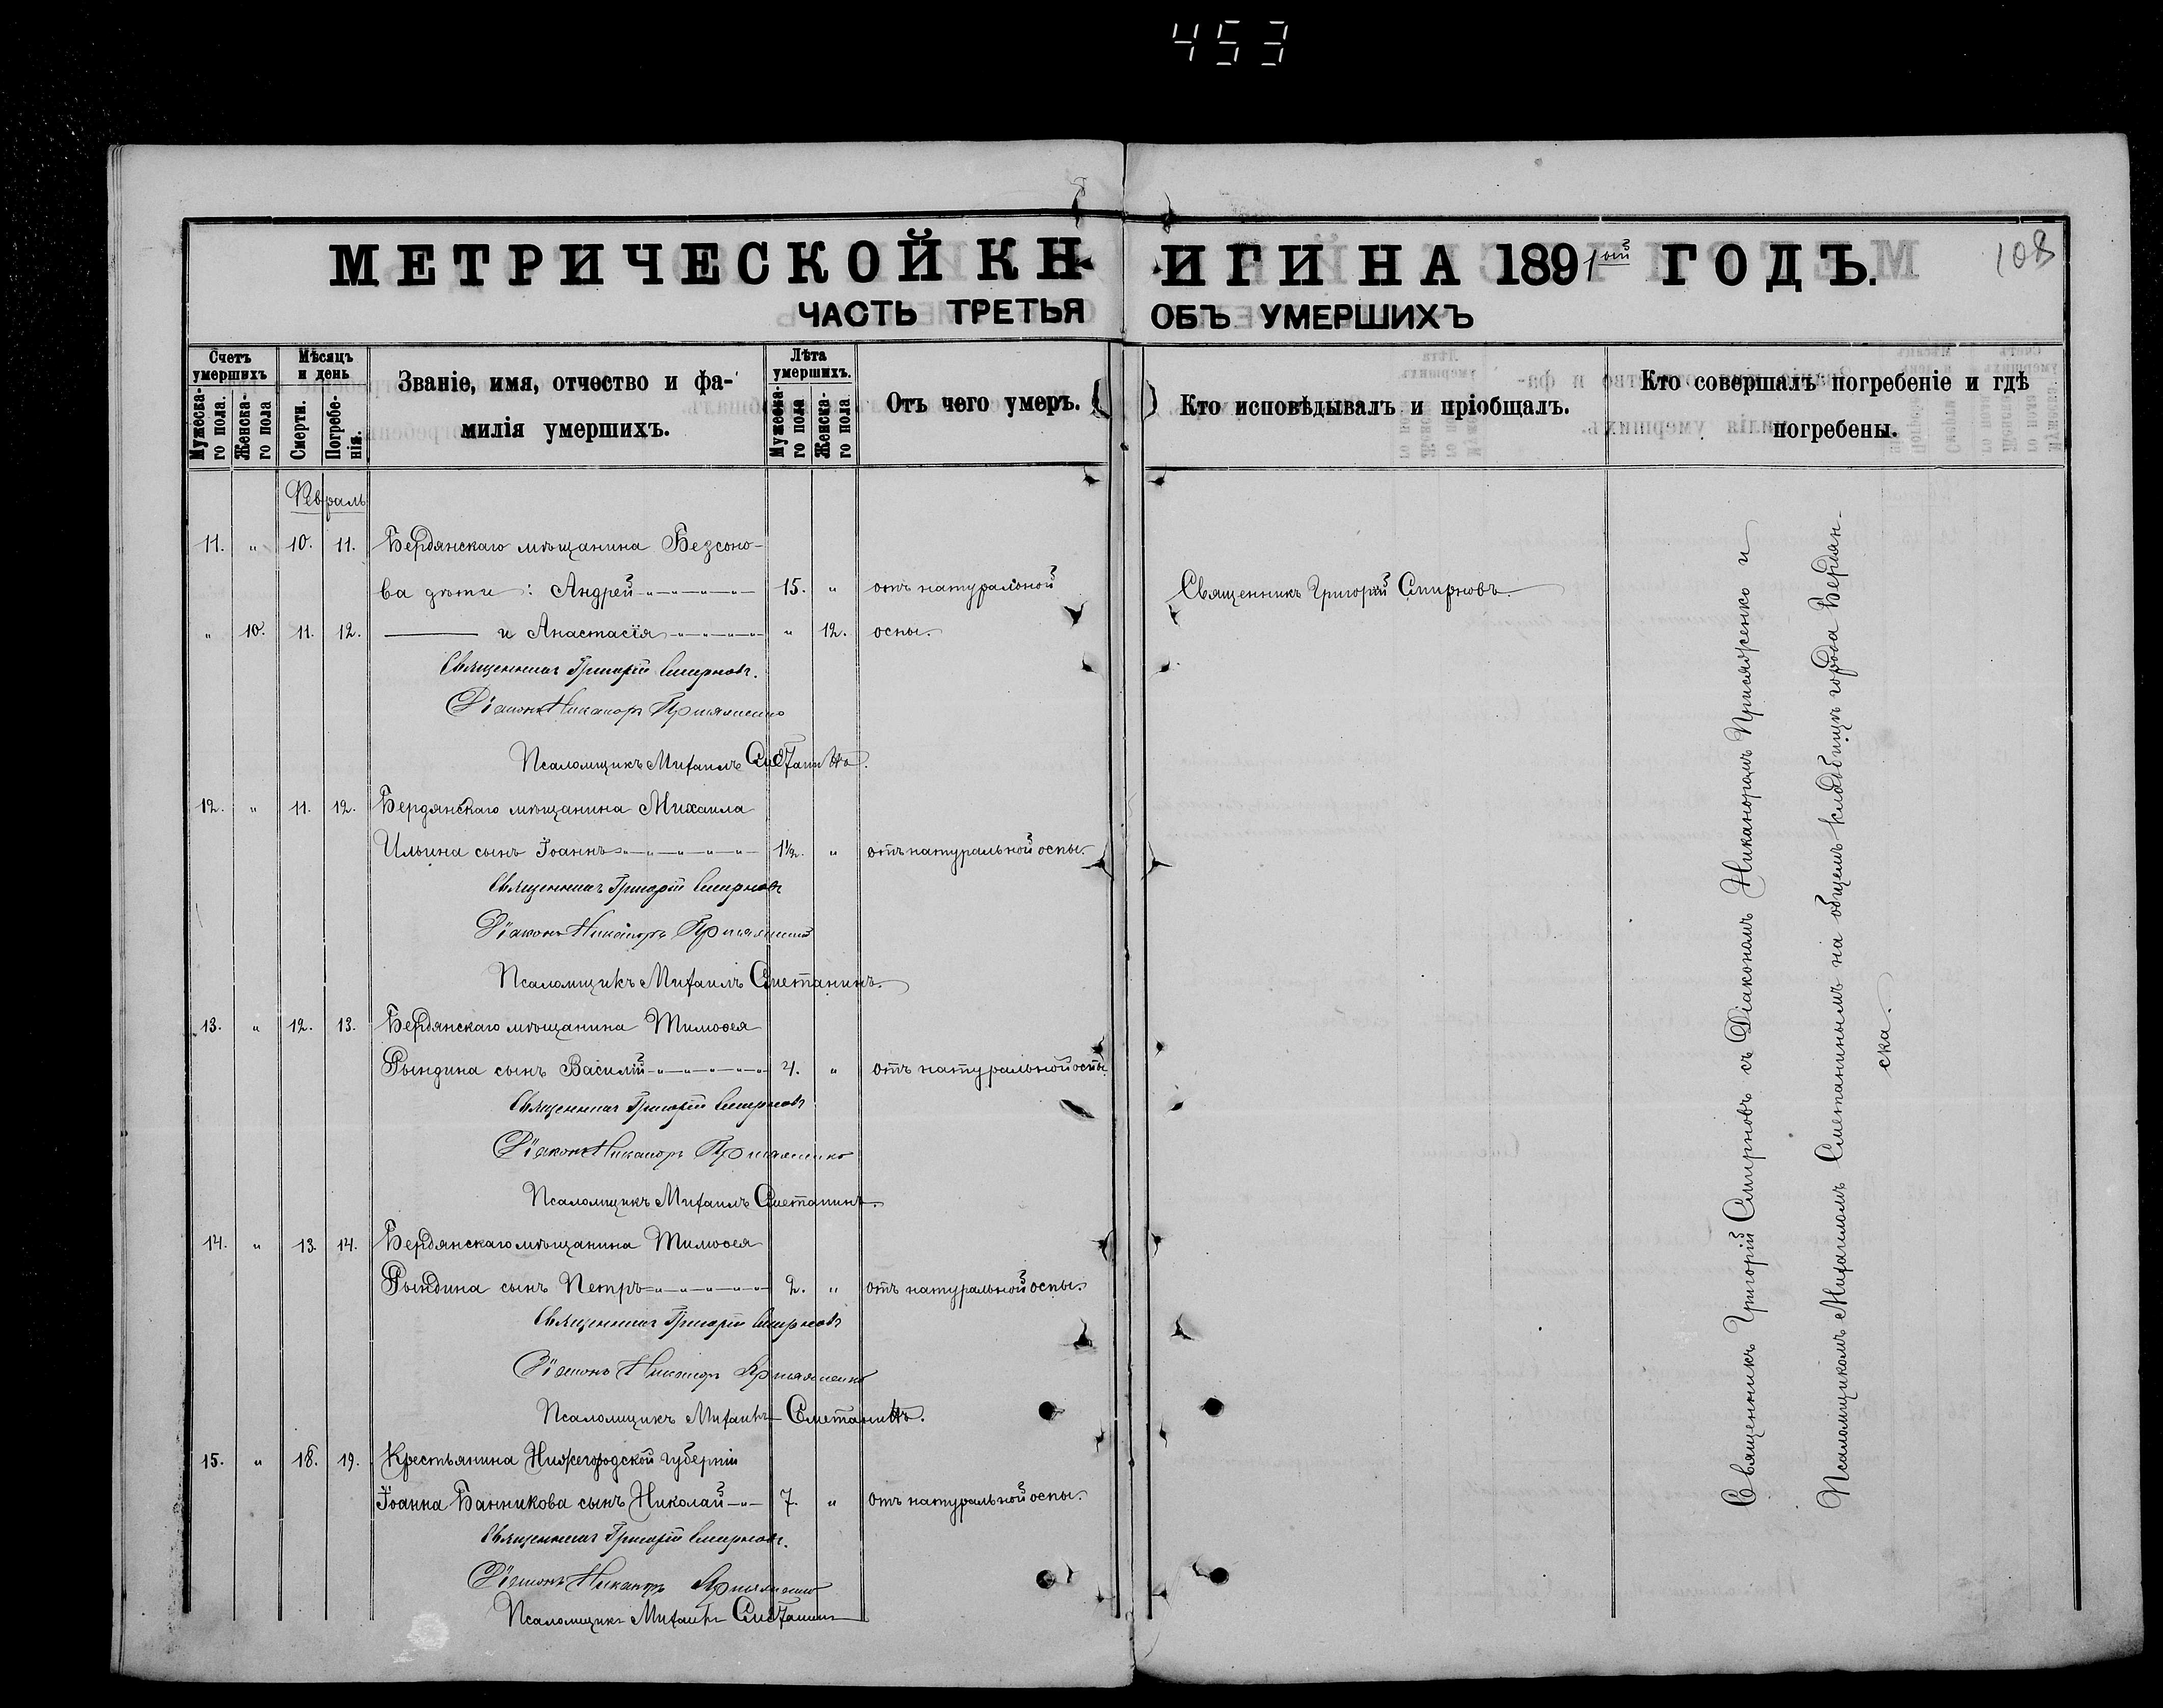 453
МЕТРИЧЕСКОЙ КНИГИ НА 1891ый ГОДЪ.
108
ЧАСТЬ ТРЕТЬЯ ОБЪ УМЕРШИХЪ
Счетъ умершихъ
Мужеска-го пола.
Женска-го пола
Мѣсяцъ и день
Смерти.
Погребе-нія.
Званіе, имя, отчество и фа-
милія умершихъ.
Лѣта умершихъ.
Мужеска-го пола
Женска-го пола
Отъ чего умеръ.
Кто исповѣдывалъ и пріобщалъ.
Кто совершалъ погребеніе и гдѣ
погребены.
Февраль
11. " 10. 11. Бердянскаго мѣщанина Безсоно-
ва дѣти: Андрей 15. " отъ натуральной Священникъ Григорій Смирновъ
" 10. 11. 12. и Анастасія " 12. оспы.
Священникъ Григорій Смирновъ.
Діаконъ Никаноръ Присяженко
Псаломщикъ Михаилъ Сметанинъ.
12. " 11. 12. Бердянскаго мѣщанина Михаила
Ильина сынъ Іоаннъ 1½. " отъ натуральной оспы.
Священникъ Григорій Смирновъ
Діаконъ Никаноръ Присяженко
Псаломщикъ Михаилъ Сметанинъ.
13. " 12. 13. Бердянскаго мѣщанина Тимоѳея
Рындина сынъ Василій 4. " отъ натуральной оспы
Священникъ Григорій Смирновъ
Діаконъ Никаноръ Присяженко
Псаломщикъ Михаилъ Сметанинъ.
14. " 13 14. Бердянскаго мѣщанина Тимоѳея
Рындина сынъ Петръ 2. " отъ натуральной оспы.
Священникъ Григорій Смирновъ
Діаконъ Никаноръ Присяженко
Псаломщикъ Михаилъ Сметанинъ.
15. " 18. 19. Крестьянина Нижегородской губерніи
Іоанна Банникова сынъ Николай 7. " отъ натуральной оспы.
Священникъ Григорій Смирновъ.
Діаконъ Никаноръ Присяженко
Псаломщикъ Михаилъ Сметанинъ
Священникъ Григорій Смирновъ съ Діакономъ Никаноромъ Присяженко и
Псаломщикомъ Михаиломъ Сметанинымъ на общемъ кладбищѣ города Бердян-
ска.